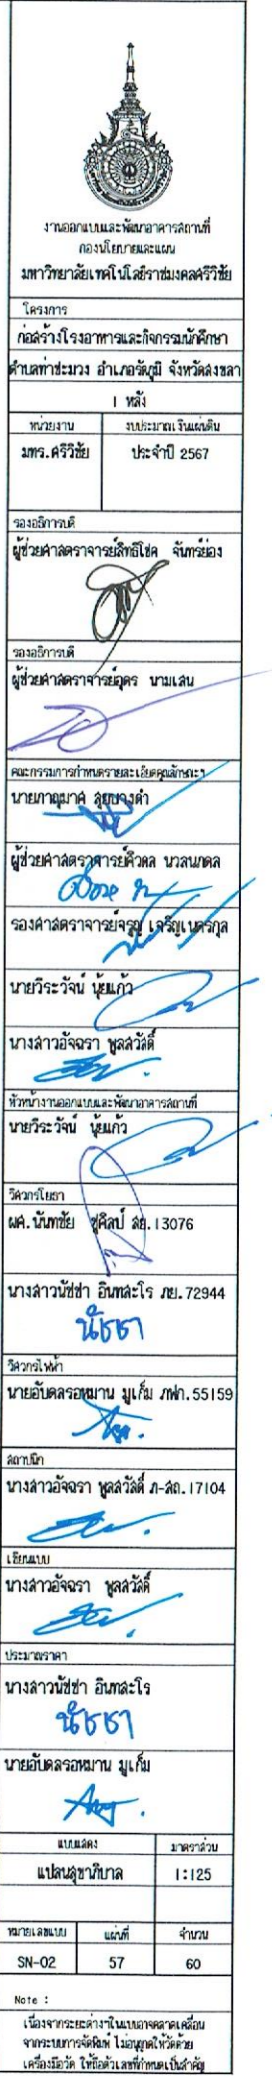 งานออกแบบและพัฒนาอาคารสถานที่
กองนโยบายและแผน
มหาวิทยาลัยเทคโนโลยีราชมงคลศรีวิชัย
โครงการ
ก่อสร้างโรงอาหารและกิจกรรมนักศึกษา
ตำบลท่าชะมวง อำเภอรัตภูมิ จังหวัดสงขลา
1 หลัง
หน่วยงาน งบประมาณเงินแผ่นดิน
มทร.ศรีวิชัย ประจำปี 2567
รองอธิการบดี
ผู้ช่วยศาสตราจารย์สิทธิโชค จันทร์ย่อง
รองอธิการบดี
ผู้ช่วยศาสตราจารย์อุดร นามเสน
คณะกรรมการกำหนดรายละเอียดคุณลักษณะฯ
นายภาณุมาศ สุยบางดำ
ผู้ช่วยศาสตราจารย์ศิวดล นวลนภดล
รองศาสตราจารย์จรูญ เจริญเนตรกุล
นายวีระวัจน์ นุ้ยแก้ว
นางสาวอัจฉรา พูลสวัสดิ์
หัวหน้างานออกแบบและพัฒนาอาคารสถานที่
นายวีระวัจน์ นุ้ยแก้ว
วิศวกรโยธา
ผศ.นันทชัย ชูศิลป์ สย.13076
นางสาวนัชชา อินทสะโร ภย.72944
นัชชา
วิศวกรไฟฟ้า
นายอับดลรอหมาน มูเก็ม ภฟก.55159
สถาปนิก
นางสาวอัจฉรา พูลสวัสดิ์ ภ-สถ.17104
เขียนแบบ
นางสาวอัจฉรา พูลสวัสดิ์
ประมาณราคา
นางสาวนัชชา อินทสะโร
นัชชา
นายอับดลรอหมาน มูเก็ม
แบบแสดง มาตราส่วน
แปลนสุขาภิบาล 1:125
หมายเลขแบบ แผ่นที่ จำนวน
SN-02 57 60
Note :
เนื่องจากระยะต่างๆในแบบอาจคลาดเคลื่อน
จากระบบการจัดพิมพ์ ไม่อนุญาตให้วัดด้วย
เครื่องมือวัด ให้ถือตัวเลขที่กำหนดเป็นสำคัญ